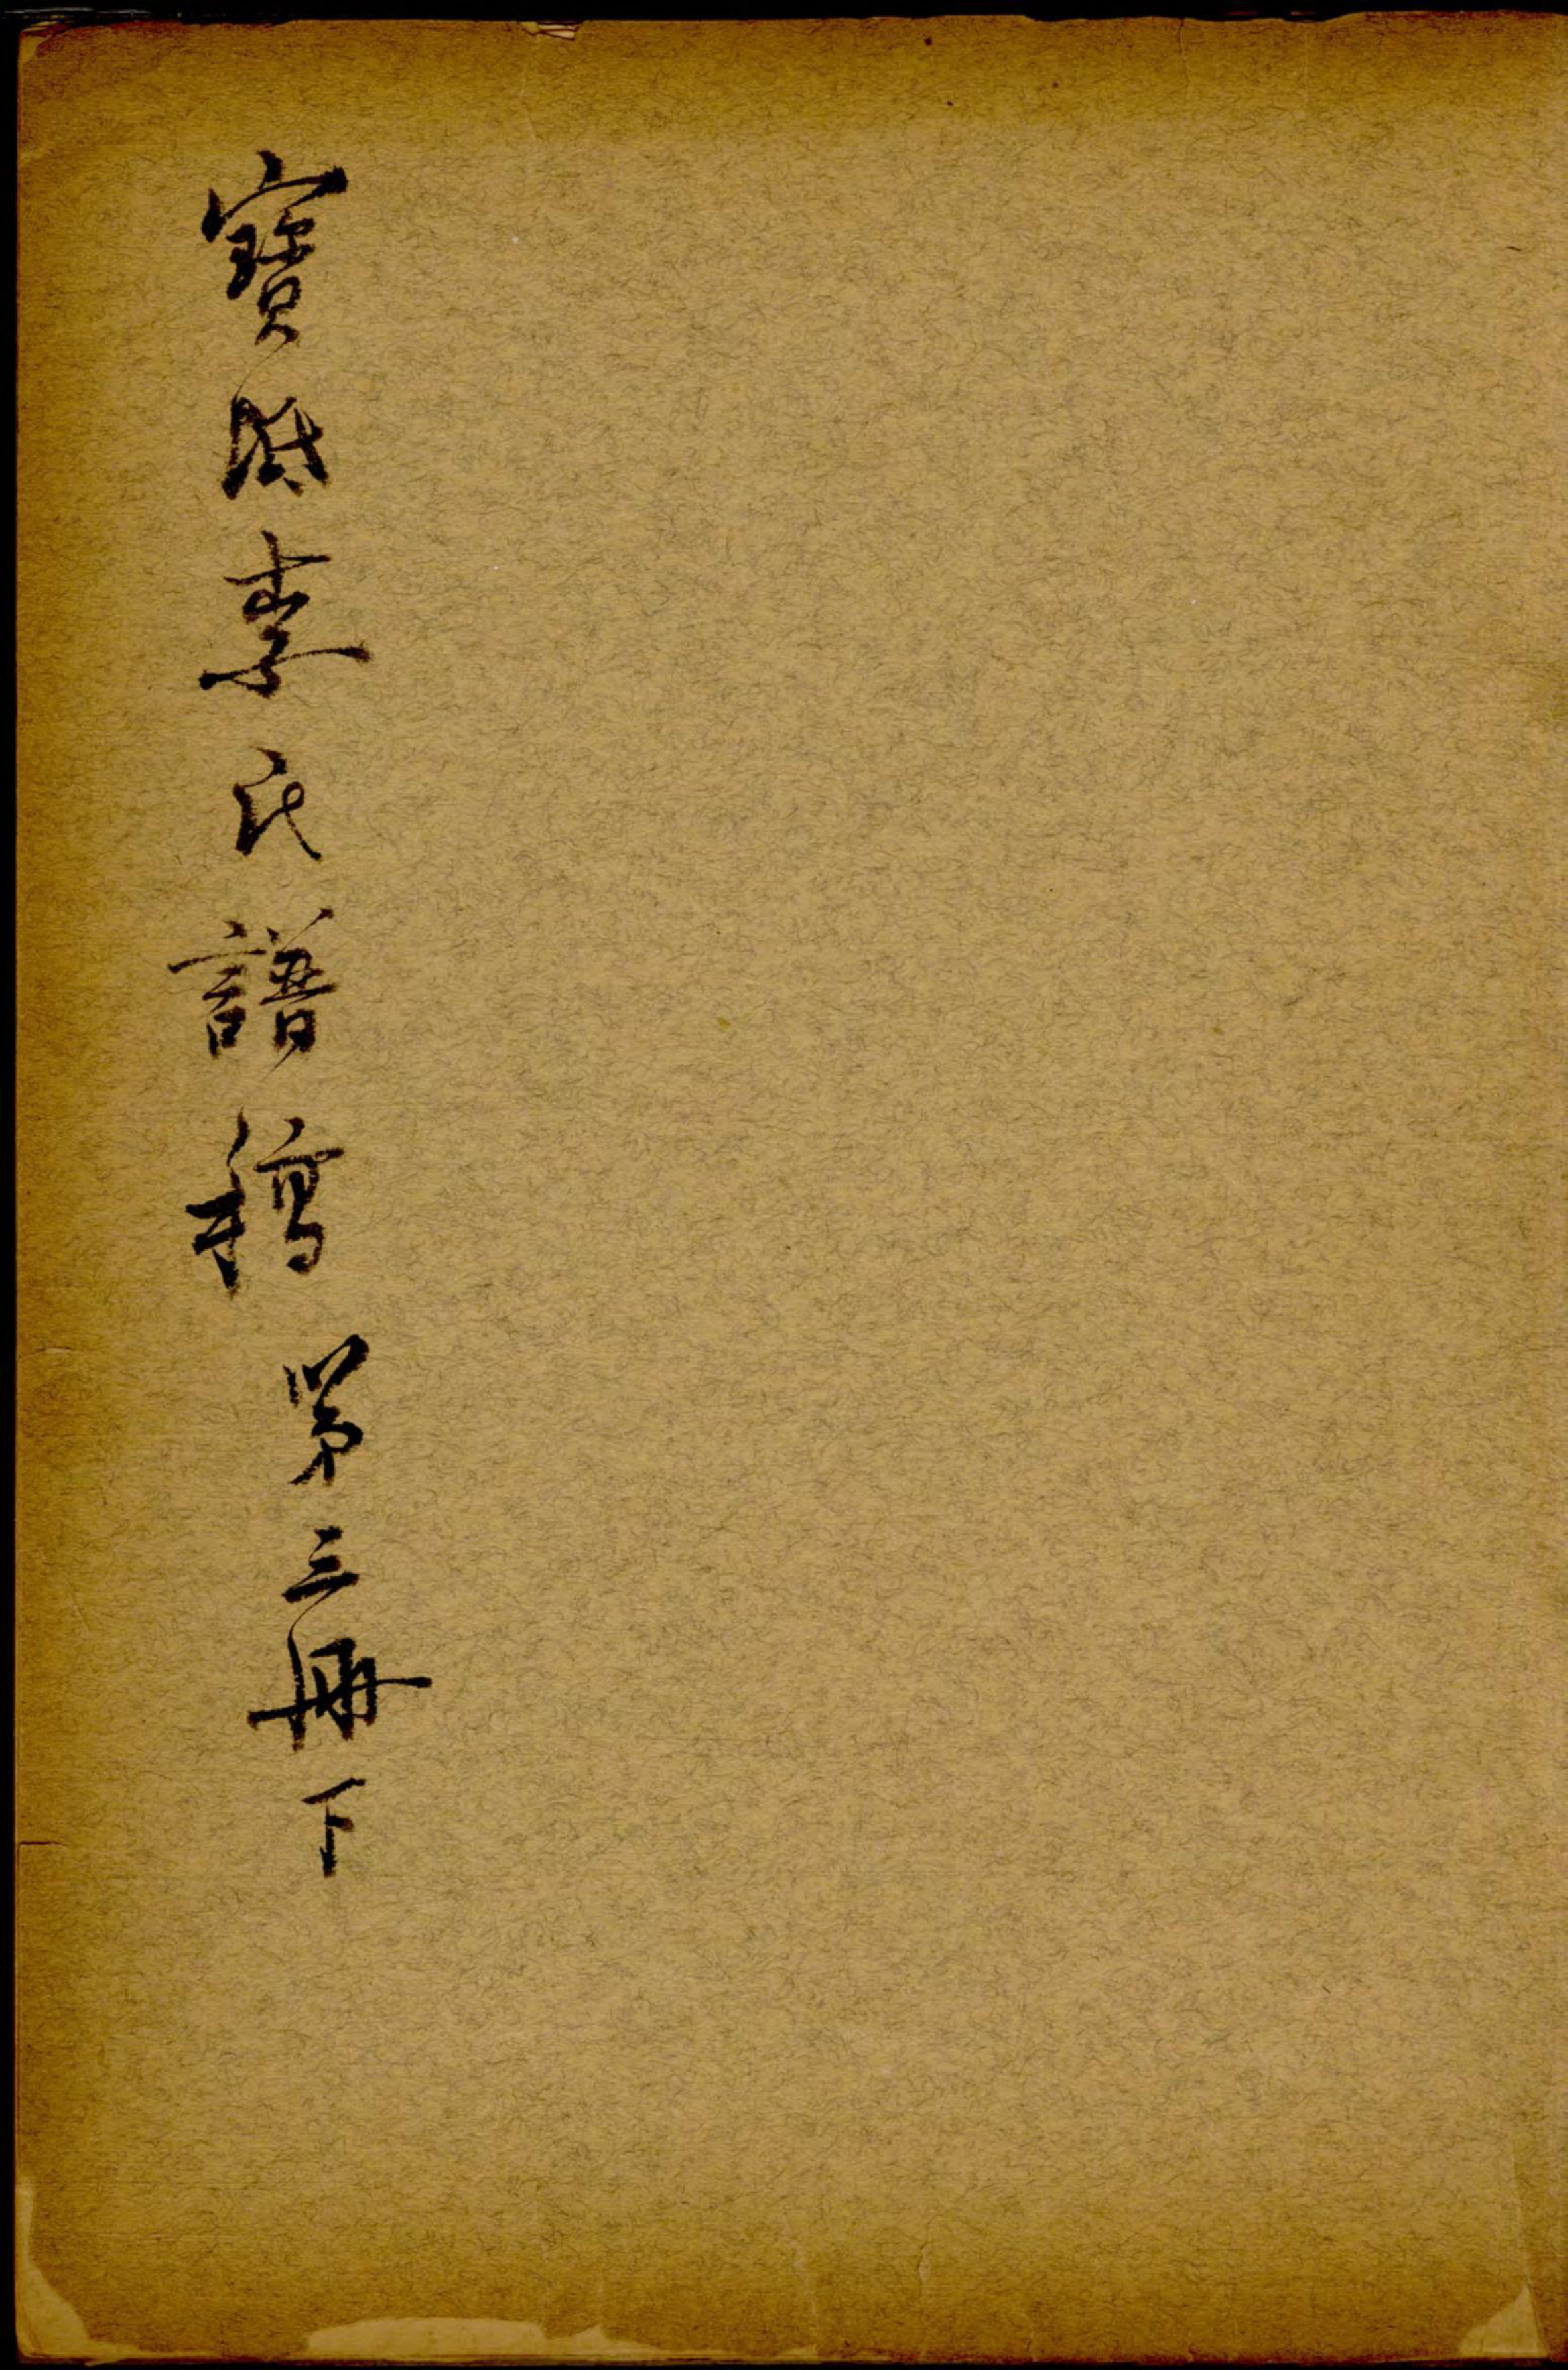 寶坻李氏譜稿 第三冊下